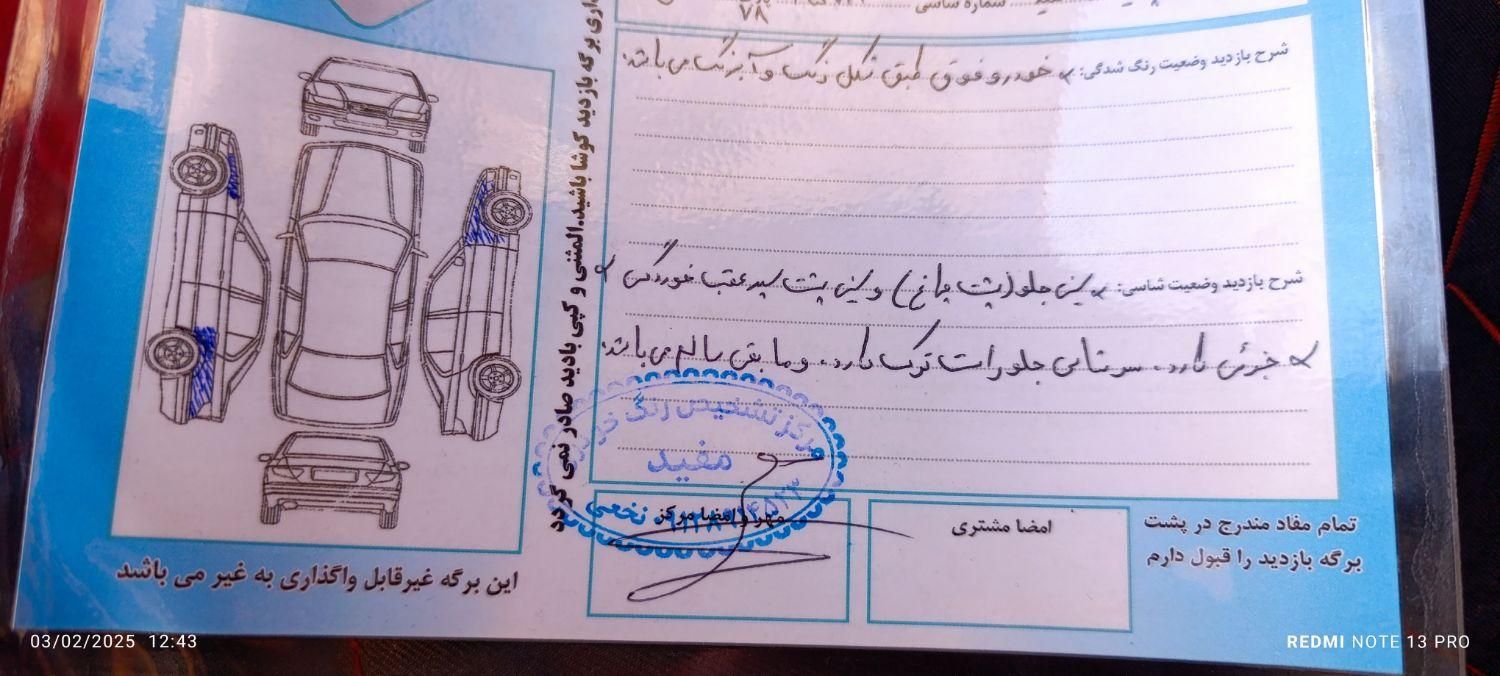 شماره شاسی
۷۸
شرح بازدید وضعیت رنگ شدگی: خودرو فوق طبق شکل رنگ و آبرنگ می باشد.
شرح بازدید وضعیت شاسی: سینی جلو (پشت چراغ) و سینی پشت سپر عقب خوردگی
جزئی دارد. سرشاسی جلو راست ترک دارد. و مابقی سالم می باشد.
برگه بازدید کوشا باشید.المثنی و کپی بازدید صادر نمی گردد
مرکز تشخیص رنگ خودرو
مفید
نخعی
مهر و امضا مرکز
امضا مشتری
تمام مفاد مندرج در پشت
برگه بازدید را قبول دارم
این برگه غیرقابل واگذاری به غیر می باشد
03/02/2025 12:43
REDMI NOTE 13 PRO